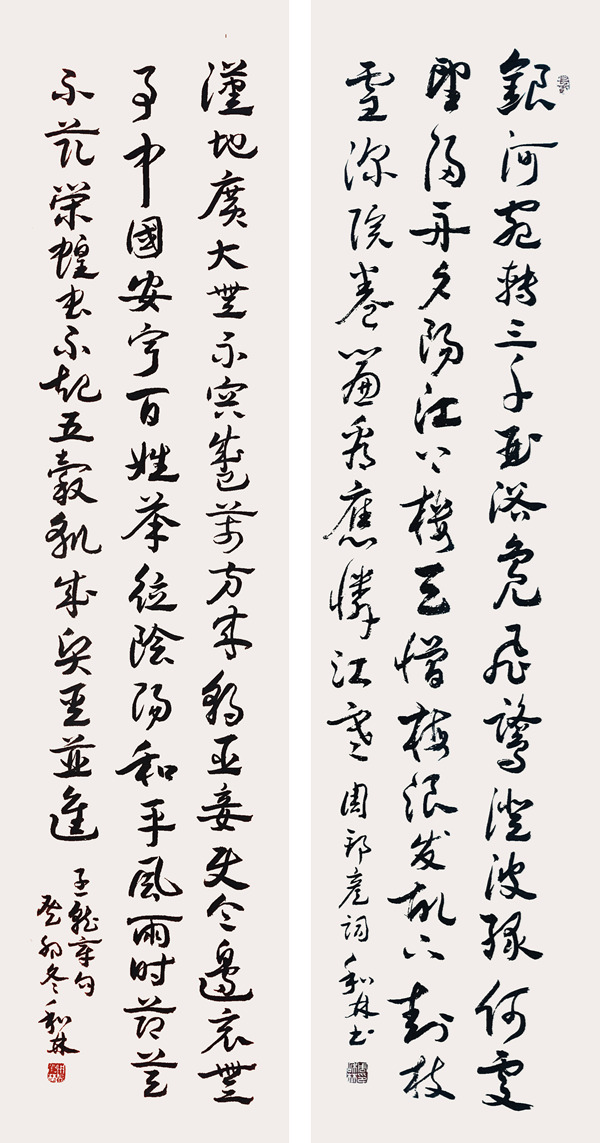 銀河宛轉三千曲浴鳧飛鷺澄波綠何處
望歸舟夕陽江上樓天憎梅浪发故下封枝
雪深院卷簾看應憐江寒 周邦彥詞 和林书
漢地廣大無不容盛萬方來朝邊無
事中國安寧百姓陰陽和平風雨时節
不荒蝗虫不起五穀孰成賢聖並進
子龍章句
癸卯冬和林